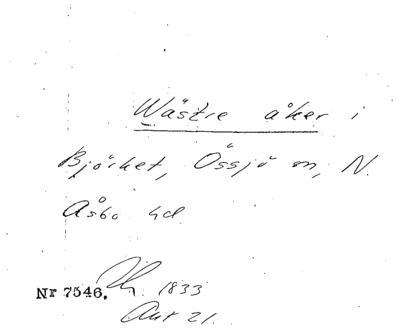 Wästre åker i
Björket, Össjö sn, N.
Åsbo hd
Nr 7546. 1833
Akt 21.